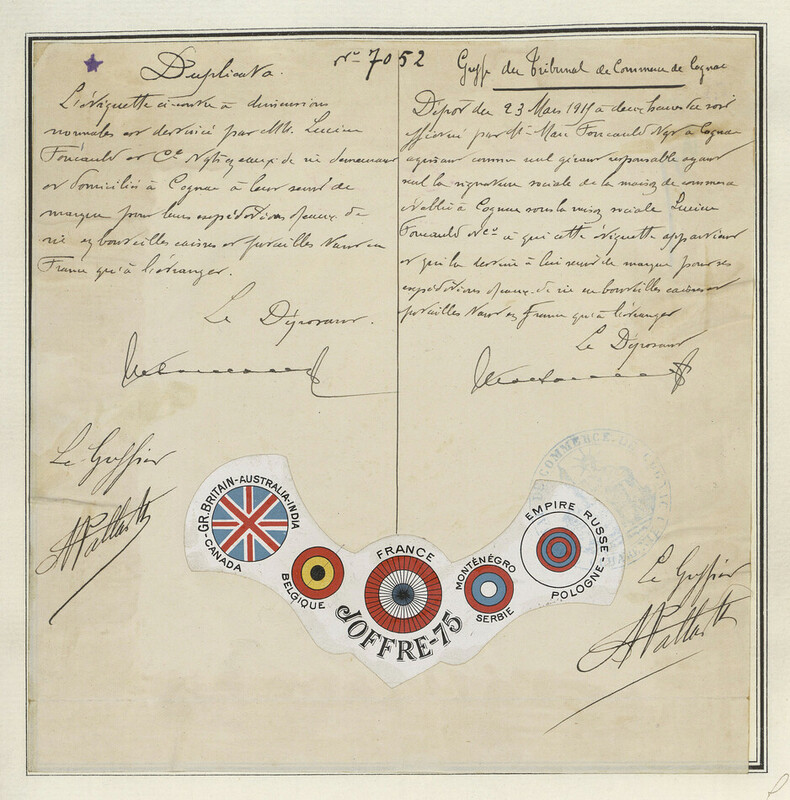 Duplicata.
No 7052
Greffe du Tribunal de Commerce de Cognac
L'étiquette ci-contre à dimensions
normales est destinée par MM. Lucien
Foucauld et Cie Ngts en eaux de vie demeurant
et domiciliés à Cognac à leur servir de
marque pour leurs expéditions d'eaux de
vie en bouteilles caisses et pareilles tant en
France qu'à l'étranger.
Le Déposant.
Dépôt du 23 Mars 1915 à deux heures du soir
effectué par Mr Marc Foucauld Ngt à Cognac
agissant comme seul gérant responsable ayant
seul la signature sociale de la maison de commerce
établie à Cognac sous la raison sociale Lucien
Foucauld et Cie à qui cette étiquette appartient
et qui la destine à lui servir de marque pour ses
expéditions d'eaux de vie en bouteilles caisses et
pareilles tant en France qu'à l'étranger
Le Déposant
Le Greffier
GR.BRITAIN-AUSTRALIA-INDIA-CANADA
BELGIQUE
FRANCE
MONTÉNÉGRO
SERBIE
EMPIRE RUSSE-POLOGNE-
JOFFRE-75
DE COMMERCE DE COGNAC
Le Greffier